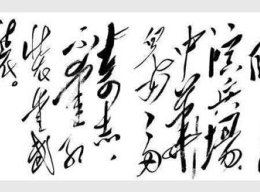 演兵场。
中华
儿女多
奇志,
不爱红
装爱武
装。